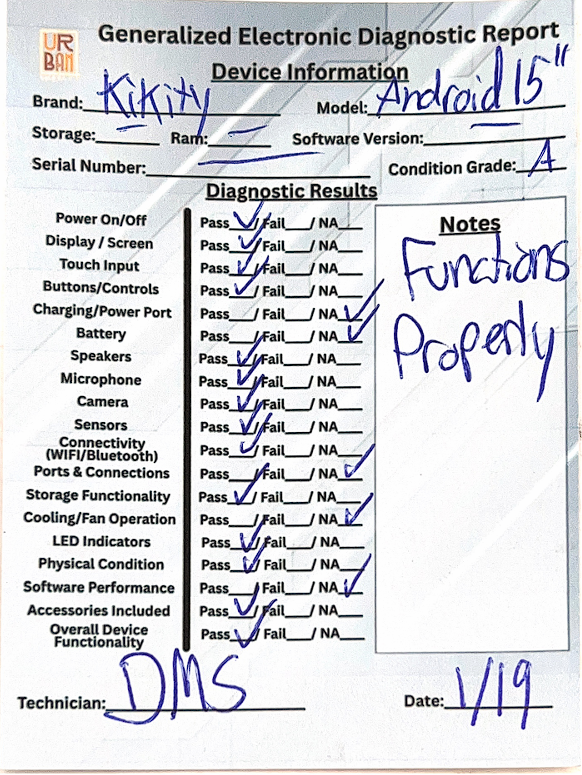 URBAN
Generalized Electronic Diagnostic Report
Device Information
Brand: Kikity Model: Android 15"
Storage: — Ram: — Software Version: —
Serial Number: — Condition Grade: A
Diagnostic Results
Power On/Off Pass ✓ / Fail___ / NA___
Display / Screen Pass ✓ / Fail___ / NA___
Touch Input Pass ✓ / Fail___ / NA___
Buttons/Controls Pass ✓ / Fail___ / NA___
Charging/Power Port Pass___ / Fail___ / NA ✓
Battery Pass___ / Fail___ / NA ✓
Speakers Pass ✓ / Fail___ / NA___
Microphone Pass ✓ / Fail___ / NA___
Camera Pass ✓ / Fail___ / NA___
Sensors Pass ✓ / Fail___ / NA___
Connectivity
(WIFI/Bluetooth) Pass ✓ / Fail___ / NA___
Ports & Connections Pass___ / Fail___ / NA ✓
Storage Functionality Pass ✓ / Fail___ / NA___
Cooling/Fan Operation Pass___ / Fail___ / NA ✓
LED Indicators Pass ✓ / Fail___ / NA___
Physical Condition Pass ✓ / Fail___ / NA___
Software Performance Pass___ / Fail___ / NA ✓
Accessories Included Pass ✓ / Fail___ / NA___
Overall Device
Functionality Pass ✓ / Fail___ / NA___
Notes
Functions
Properly
Technician: DMS Date: 1/19